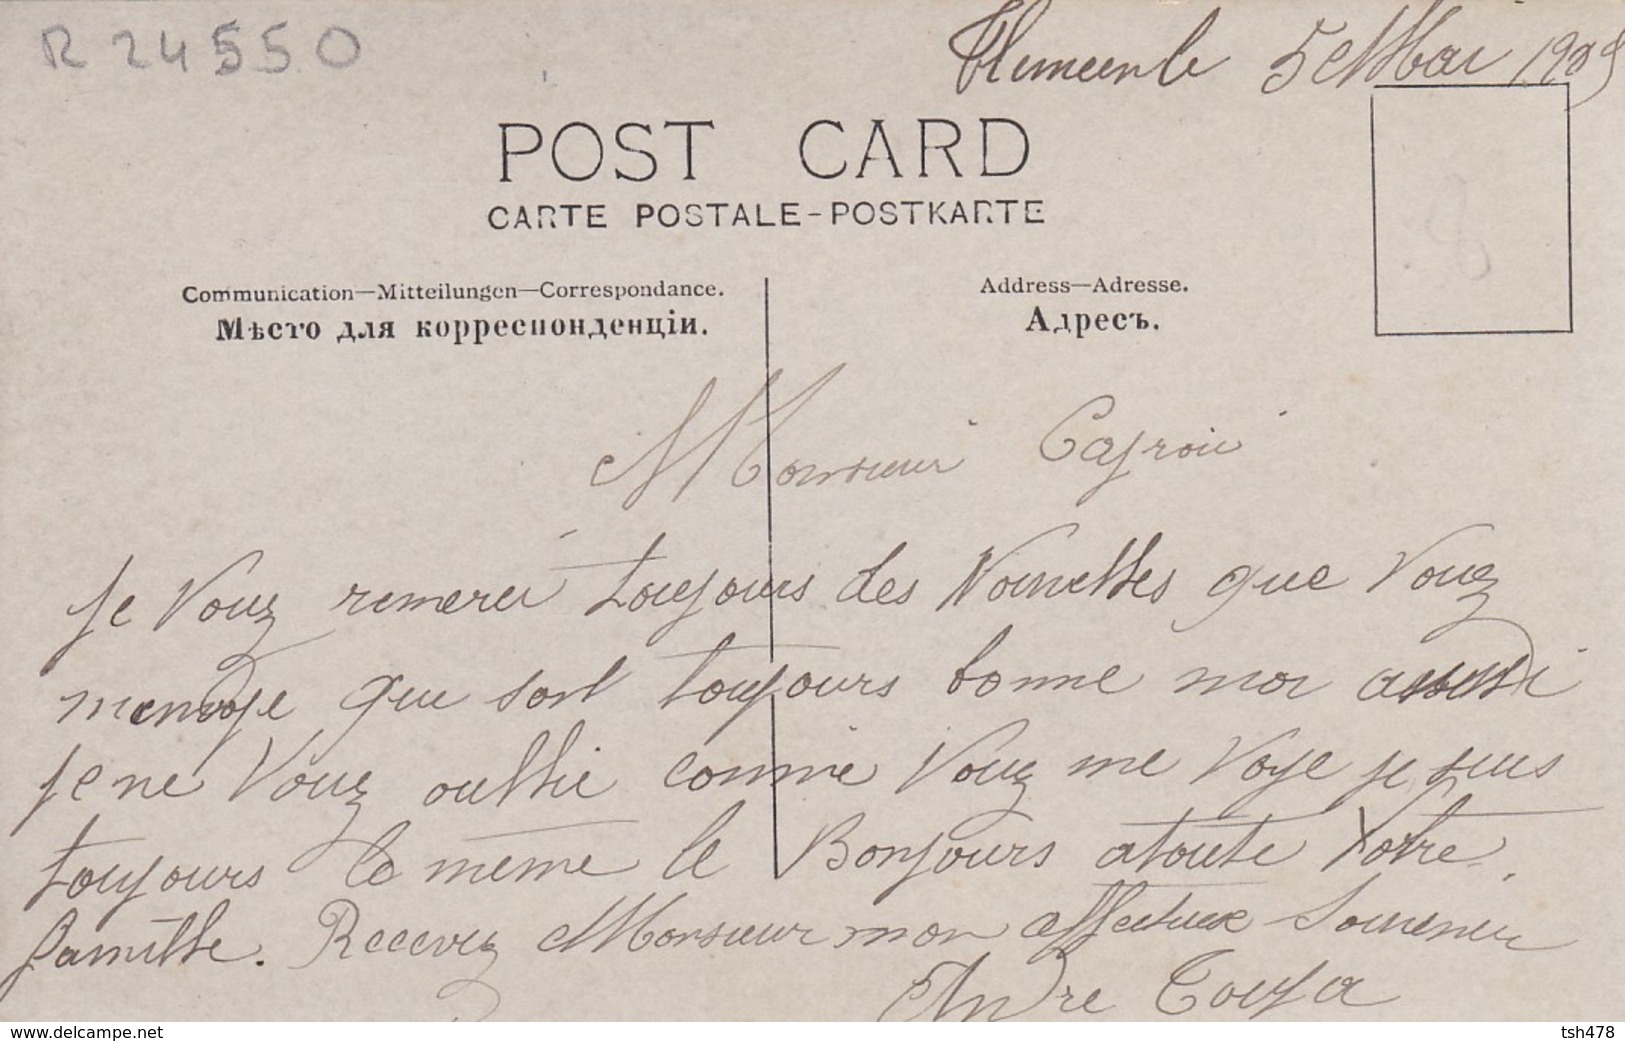 R 24550
Tlemcen le 5 Mai 1905
POST CARD
CARTE POSTALE-POSTKARTE
Communication—Mitteilungen—Correspondance.
Мѣсто для корреспонденціи.
Address—Adresse.
Адресъ.
Monsieur
Je Vous remerci toujours des Nouvelles que Vous
menvoje que sont toujours bonne moi aussi
je ne Vous oublie comme Vous me Voye je suis
toujours le même le Bonjours atoute Votre
famille. Recevez Monsieur mon affectueux Souvenir
André
www.delcampe.net
tsh478